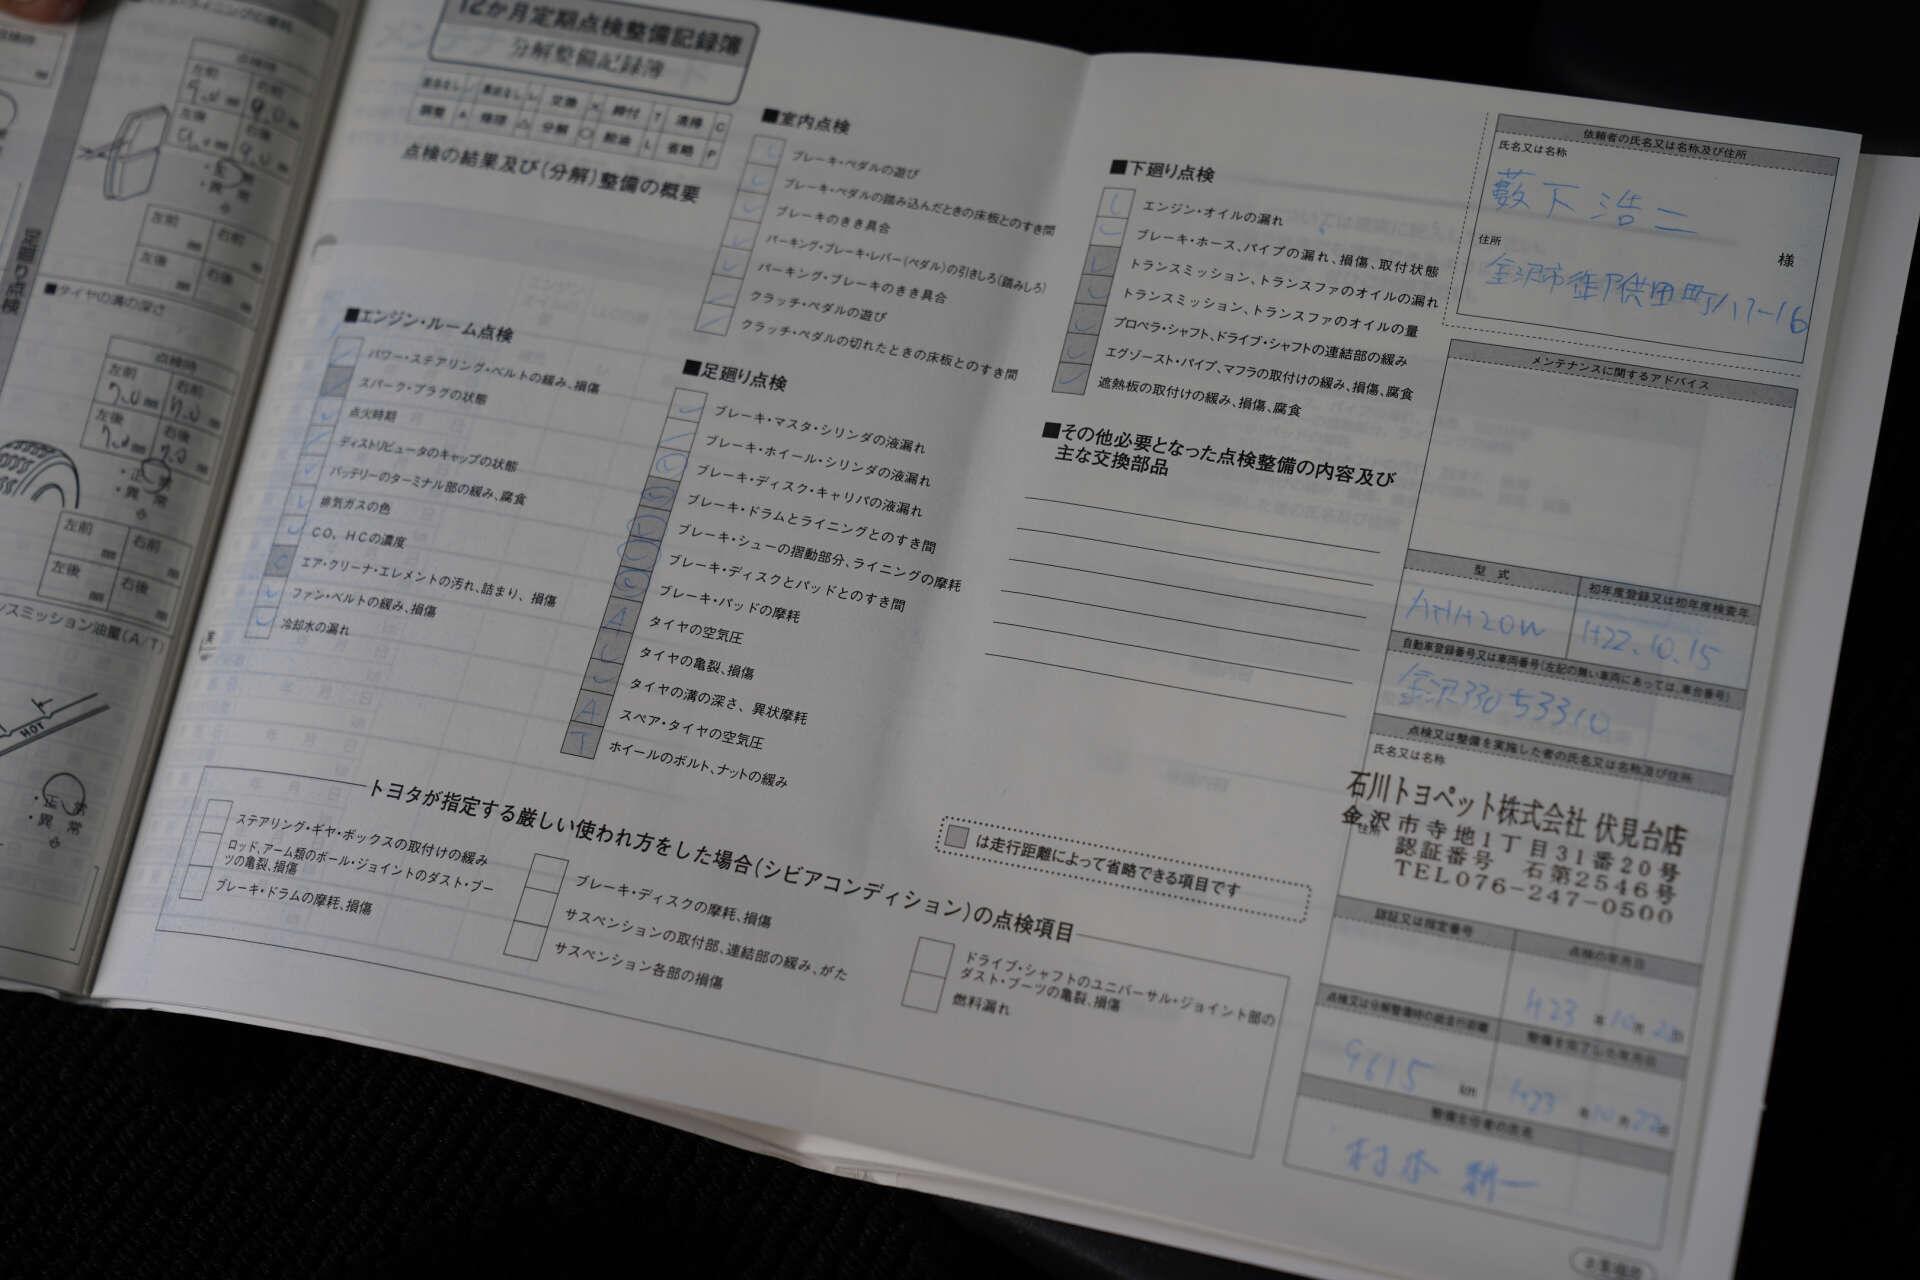 点検時
左前 右前
9.0 mm 9.0 mm
左後 右後
9.0 mm 9.0 mm
・正常
・異常
左前 mm 右前 mm
左後 mm 右後 mm
足廻り点検
■タイヤの溝の深さ
点検時
左前 右前
7.0 mm 7.0 mm
左後 右後
7.0 mm 7.0 mm
・正常
・異常
左前 mm 右前 mm
左後 mm 右後 mm
スミッション油量(A/T)
HOT
・正常
・異常
12か月定期点検整備記録簿
分解整備記録簿
交換 × 締付 T 清掃 C
調整 A 修理 △ 分解 ○ 給油 L 省略 P
点検の結果及び(分解)整備の概要
■エンジン・ルーム点検
パワー・ステアリング・ベルトの緩み、損傷
スパーク・プラグの状態
点火時期
ディストリビュータのキャップの状態
バッテリーのターミナル部の緩み、腐食
排気ガスの色
CO、HCの濃度
C エア・クリーナ・エレメントの汚れ、詰まり、損傷
ファン・ベルトの緩み、損傷
冷却水の漏れ
■室内点検
ブレーキ・ペダルの遊び
ブレーキ・ペダルの踏み込んだときの床板とのすき間
ブレーキのきき具合
パーキング・ブレーキ・レバー(ペダル)の引きしろ(踏みしろ)
パーキング・ブレーキのきき具合
クラッチ・ペダルの遊び
クラッチ・ペダルの切れたときの床板とのすき間
■足廻り点検
ブレーキ・マスタ・シリンダの液漏れ
ブレーキ・ホイール・シリンダの液漏れ
ブレーキ・ディスク・キャリパの液漏れ
ブレーキ・ドラムとライニングとのすき間
ブレーキ・シューの摺動部分、ライニングの摩耗
ブレーキ・ディスクとパッドとのすき間
ブレーキ・パッドの摩耗
A タイヤの空気圧
タイヤの亀裂、損傷
タイヤの溝の深さ、異状摩耗
A スペア・タイヤの空気圧
T ホイールのボルト、ナットの緩み
■下廻り点検
エンジン・オイルの漏れ
ブレーキ・ホース、パイプの漏れ、損傷、取付状態
トランスミッション、トランスファのオイルの漏れ
トランスミッション、トランスファのオイルの量
プロペラ・シャフト、ドライブ・シャフトの連結部の緩み
エグゾースト・パイプ、マフラの取付けの緩み、損傷、腐食
遮熱板の取付けの緩み、損傷、腐食
■その他必要となった点検整備の内容及び
主な交換部品
は走行距離によって省略できる項目です
トヨタが指定する厳しい使われ方をした場合(シビアコンディション)の点検項目
ステアリング・ギヤ・ボックスの取付けの緩み
ロッド、アーム類のボール・ジョイントのダスト・ブー
ツの亀裂、損傷
ブレーキ・ドラムの摩耗、損傷
ブレーキ・ディスクの摩耗、損傷
サスペンションの取付部、連結部の緩み、がた
サスペンション各部の損傷
ドライブ・シャフトのユニバーサル・ジョイント部の
ダスト・ブーツの亀裂、損傷
燃料漏れ
依頼者の氏名又は名称及び住所
氏名又は名称
藪下浩二
様
住所
金沢市御供田町ハ7-16
メンテナンスに関するアドバイス
型式 初年度登録又は初年度検査年
AHH20W H22.10.15
自動車登録番号又は車両番号(左記の無い車両にあっては、車台番号)
金沢330 5 3310
点検又は整備を実施した者の氏名又は名称及び住所
氏名又は名称
石川トヨペット株式会社 伏見台店
住所
金沢市寺地1丁目31番20号
認証番号 石第2546号
TEL076-247-0500
認証又は指定番号 点検の年月日
H23 年 10 月 22 日
点検又は分解整備時の総走行距離 整備を完了した年月日
9615 km H23 年 10 月 22 日
整備主任者の氏名
村本 耕一
お客様用